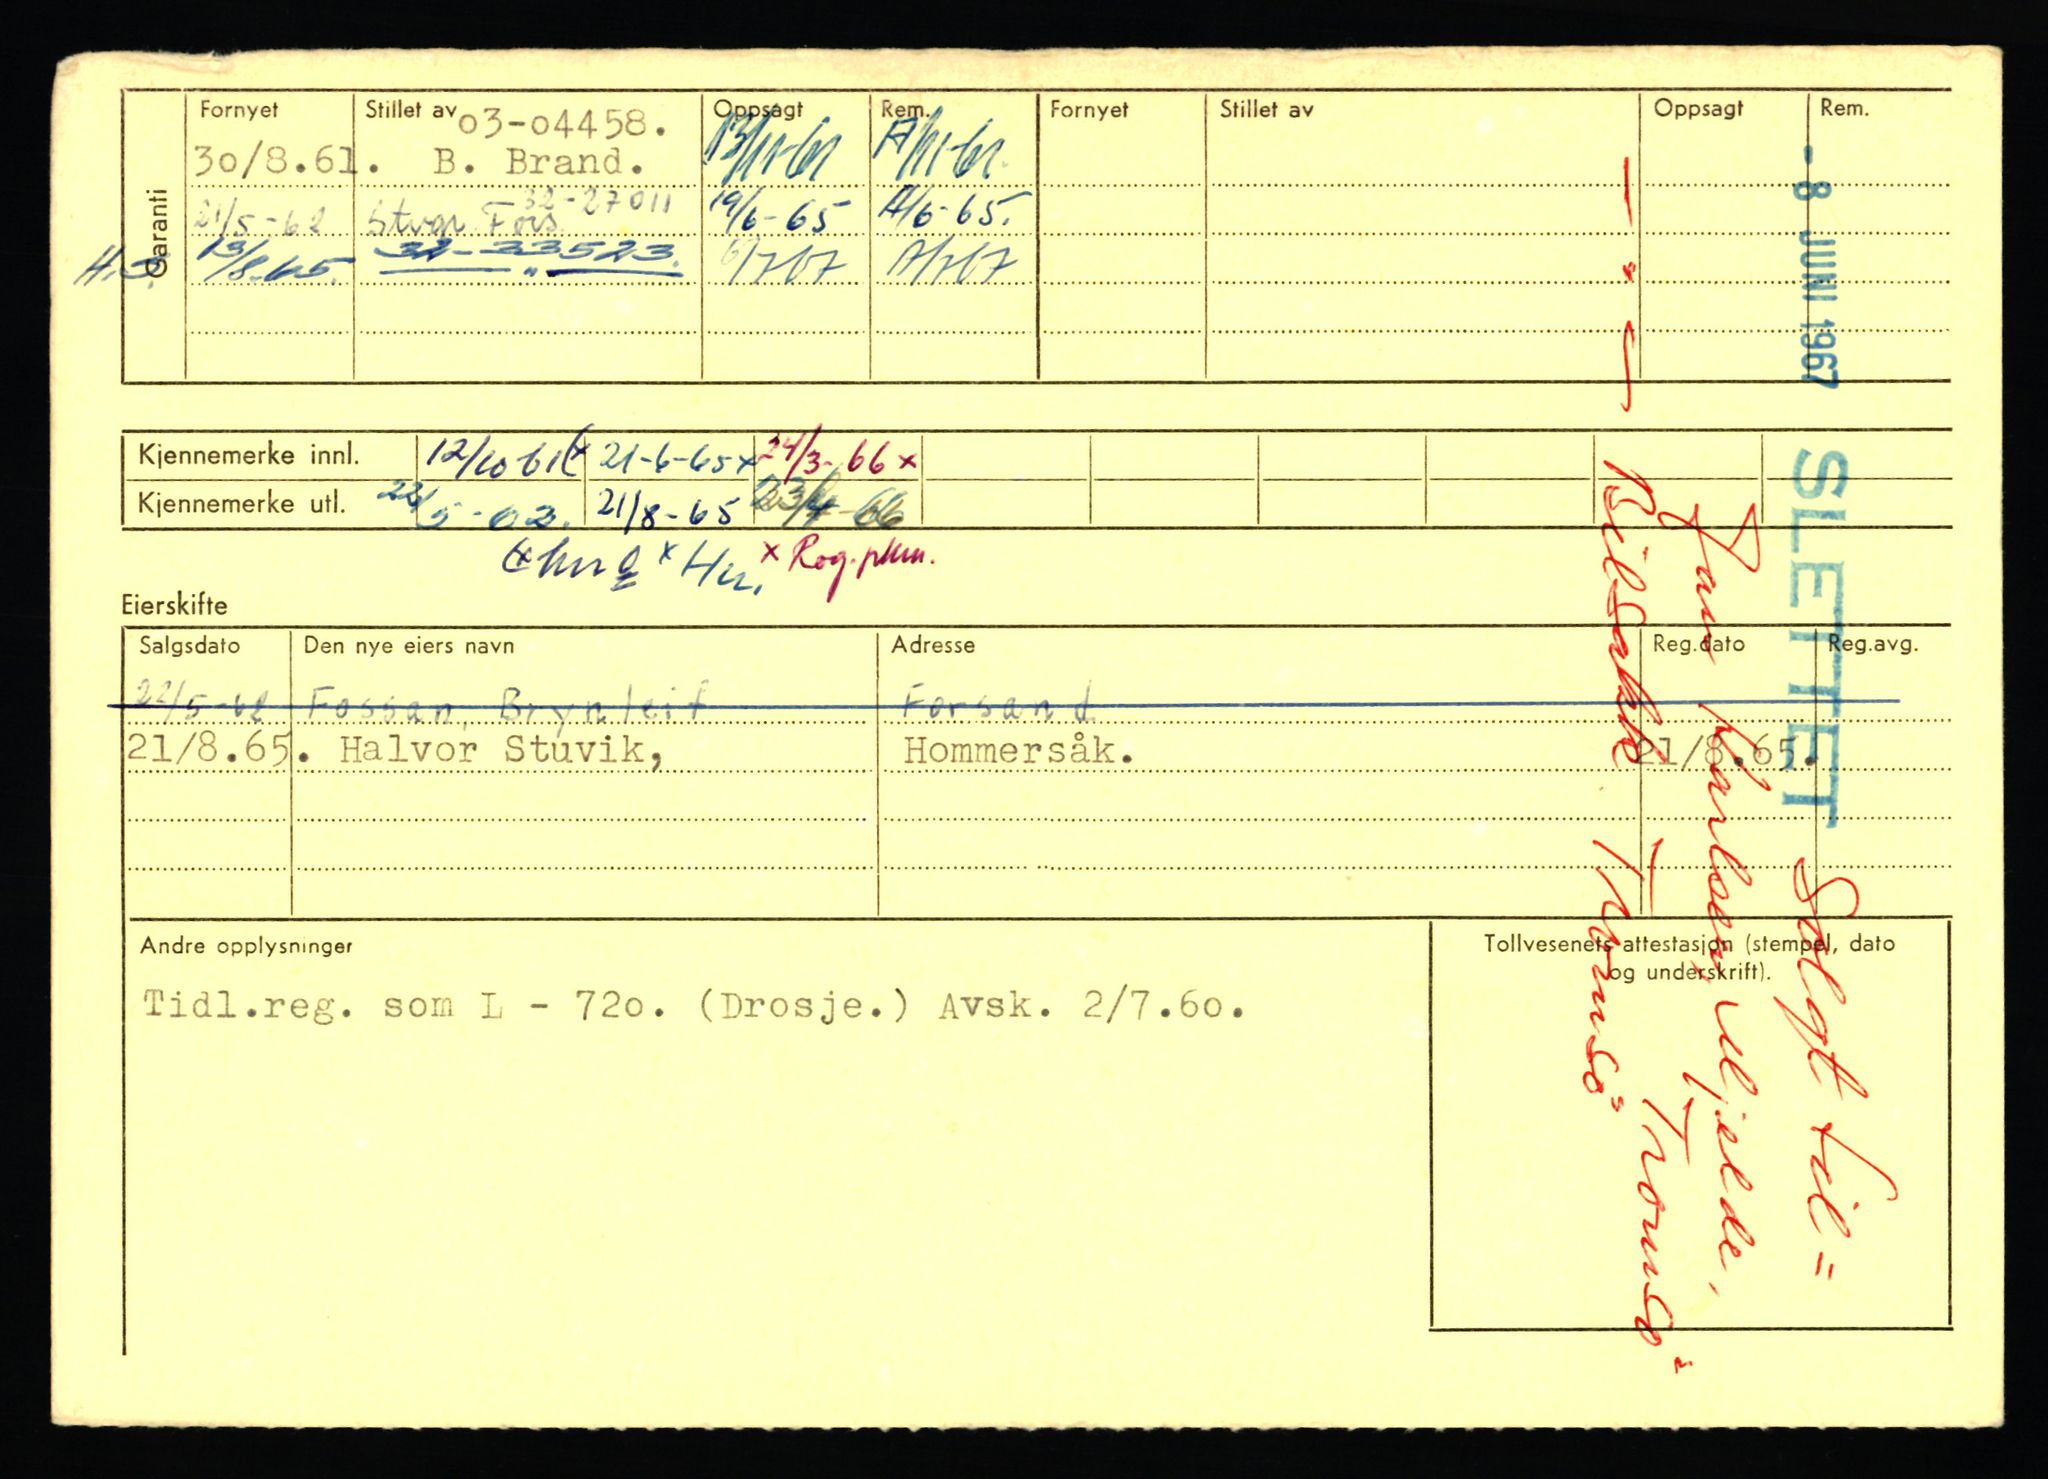 Garanti
Fornyet Stillet av Oppsagt Rem. Fornyet Stillet av Oppsagt Rem.
03-04458.
30/8.61. B. Brand.
32-27011
21/5-62 Stvgr Fors. 19/6-65
13/8-65. 32-33523.
- 8 JUNI 1967
SLETTET
Kjennemerke innl. 12/10-61 21-6-65x 24/3-66 x
Kjennemerke utl. 22/5-62. 21/8-65 23/4-66
x Rog.
Eierskifte
Salgsdato Den nye eiers navn Adresse Reg.dato Reg.avg.
22/5-62 Fossan, Brynleif Forsand
21/8.65. Halvor Stuvik, Hommersåk. 21/8.65.
Andre opplysninger
Tidl.reg. som L - 720. (Drosje.) Avsk. 2/7.60.
Tollvesenets attestasjon (stempel, dato
og underskrift).
Solgt til =
Karlsen, Mjelde,
Tromsø
Tromsø